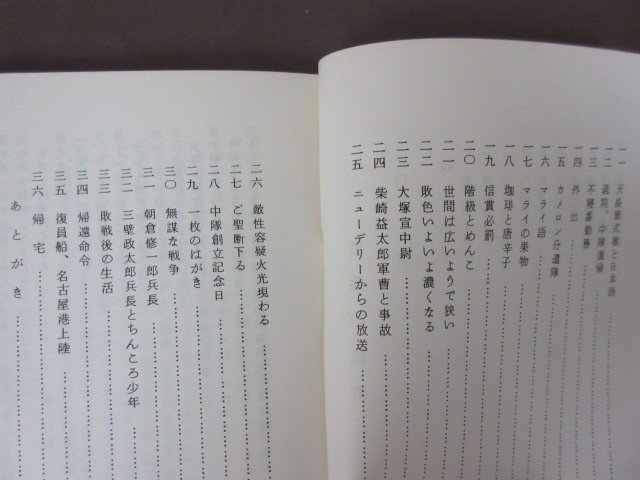 一一 天長節式歌と日本語
一二 退院、中隊復帰
一三 不寝番勤務
一四 外出
一五 カメロン分遣隊
一六 マライ語
一七 マライの果物
一八 珈琲と唐辛子
一九 信賞必罰
二〇 階級とめんこ
二一 世間は広いようで狭い
二二 敗色いよいよ濃くなる
二三 大塚宣中尉
二四 柴崎益太郎軍曹と事故
二五 ニューデリーからの放送
二六 敵性容疑火光現わる
二七 ご聖断下る
二八 中隊創立記念日
二九 一枚のはがき
三〇 無謀な戦争
三一 朝倉修一郎兵長
三二 三壁政太郎兵長とちんころ少年
三三 敗戦後の生活
三四 帰還命令
三五 復員船、名古屋港上陸
三六 帰宅
あとがき